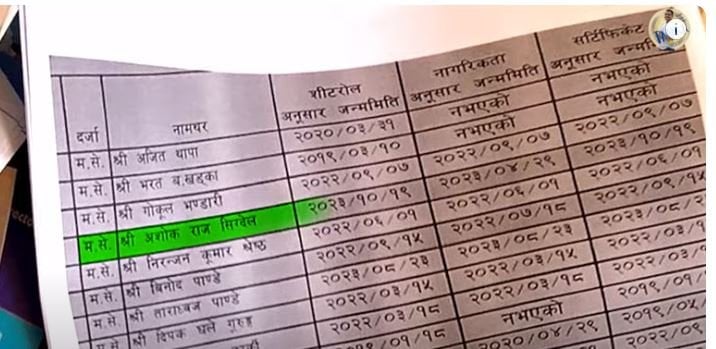 दर्जा नामथर शीटरोल अनुसार जन्ममिति नागरिकता अनुसार जन्ममिति सर्टिफिकेट अनुसार
म.से. श्री अजित थापा २०२०/०३/३१ नभएको नभएको
म.से. श्री भरत ब.खड्का २०१९/०३/१० नभएको नभएको
म.से. श्री गोकूल भण्डारी २०२२/०९/०७ २०२२/०९/०७ २०२२/०९/०७
म.से. श्री अशोक राज सिग्देल २०२३/१०/१९ २०२३/०४/२९ २०२३/१०/१९
म.से. श्री निरन्जन कुमार श्रेष्ठ २०२२/०६/०१ २०२२/०६/०१ २०२२/०६/०१
म.से. श्री बिनोद पाण्डे २०२२/०९/१५ २०२२/०७/१८ २०२२/०९/१५
म.से. श्री ताराध्वज पाण्डे २०२३/०८/२३ २०२३/०८/२३ २०२३/०८/२
श्री दिपक घले गुरुङ २०२२/०३/१५ २०२२/०३/१५ २०२२/०३/१
२०२२/०३/१८ २०२२/०३/१८ २०२२/०३/
/०१/१८ नभएको २०१९/०१/
२०२०/०४/२९ २०१९/०५/
२०२२/०९